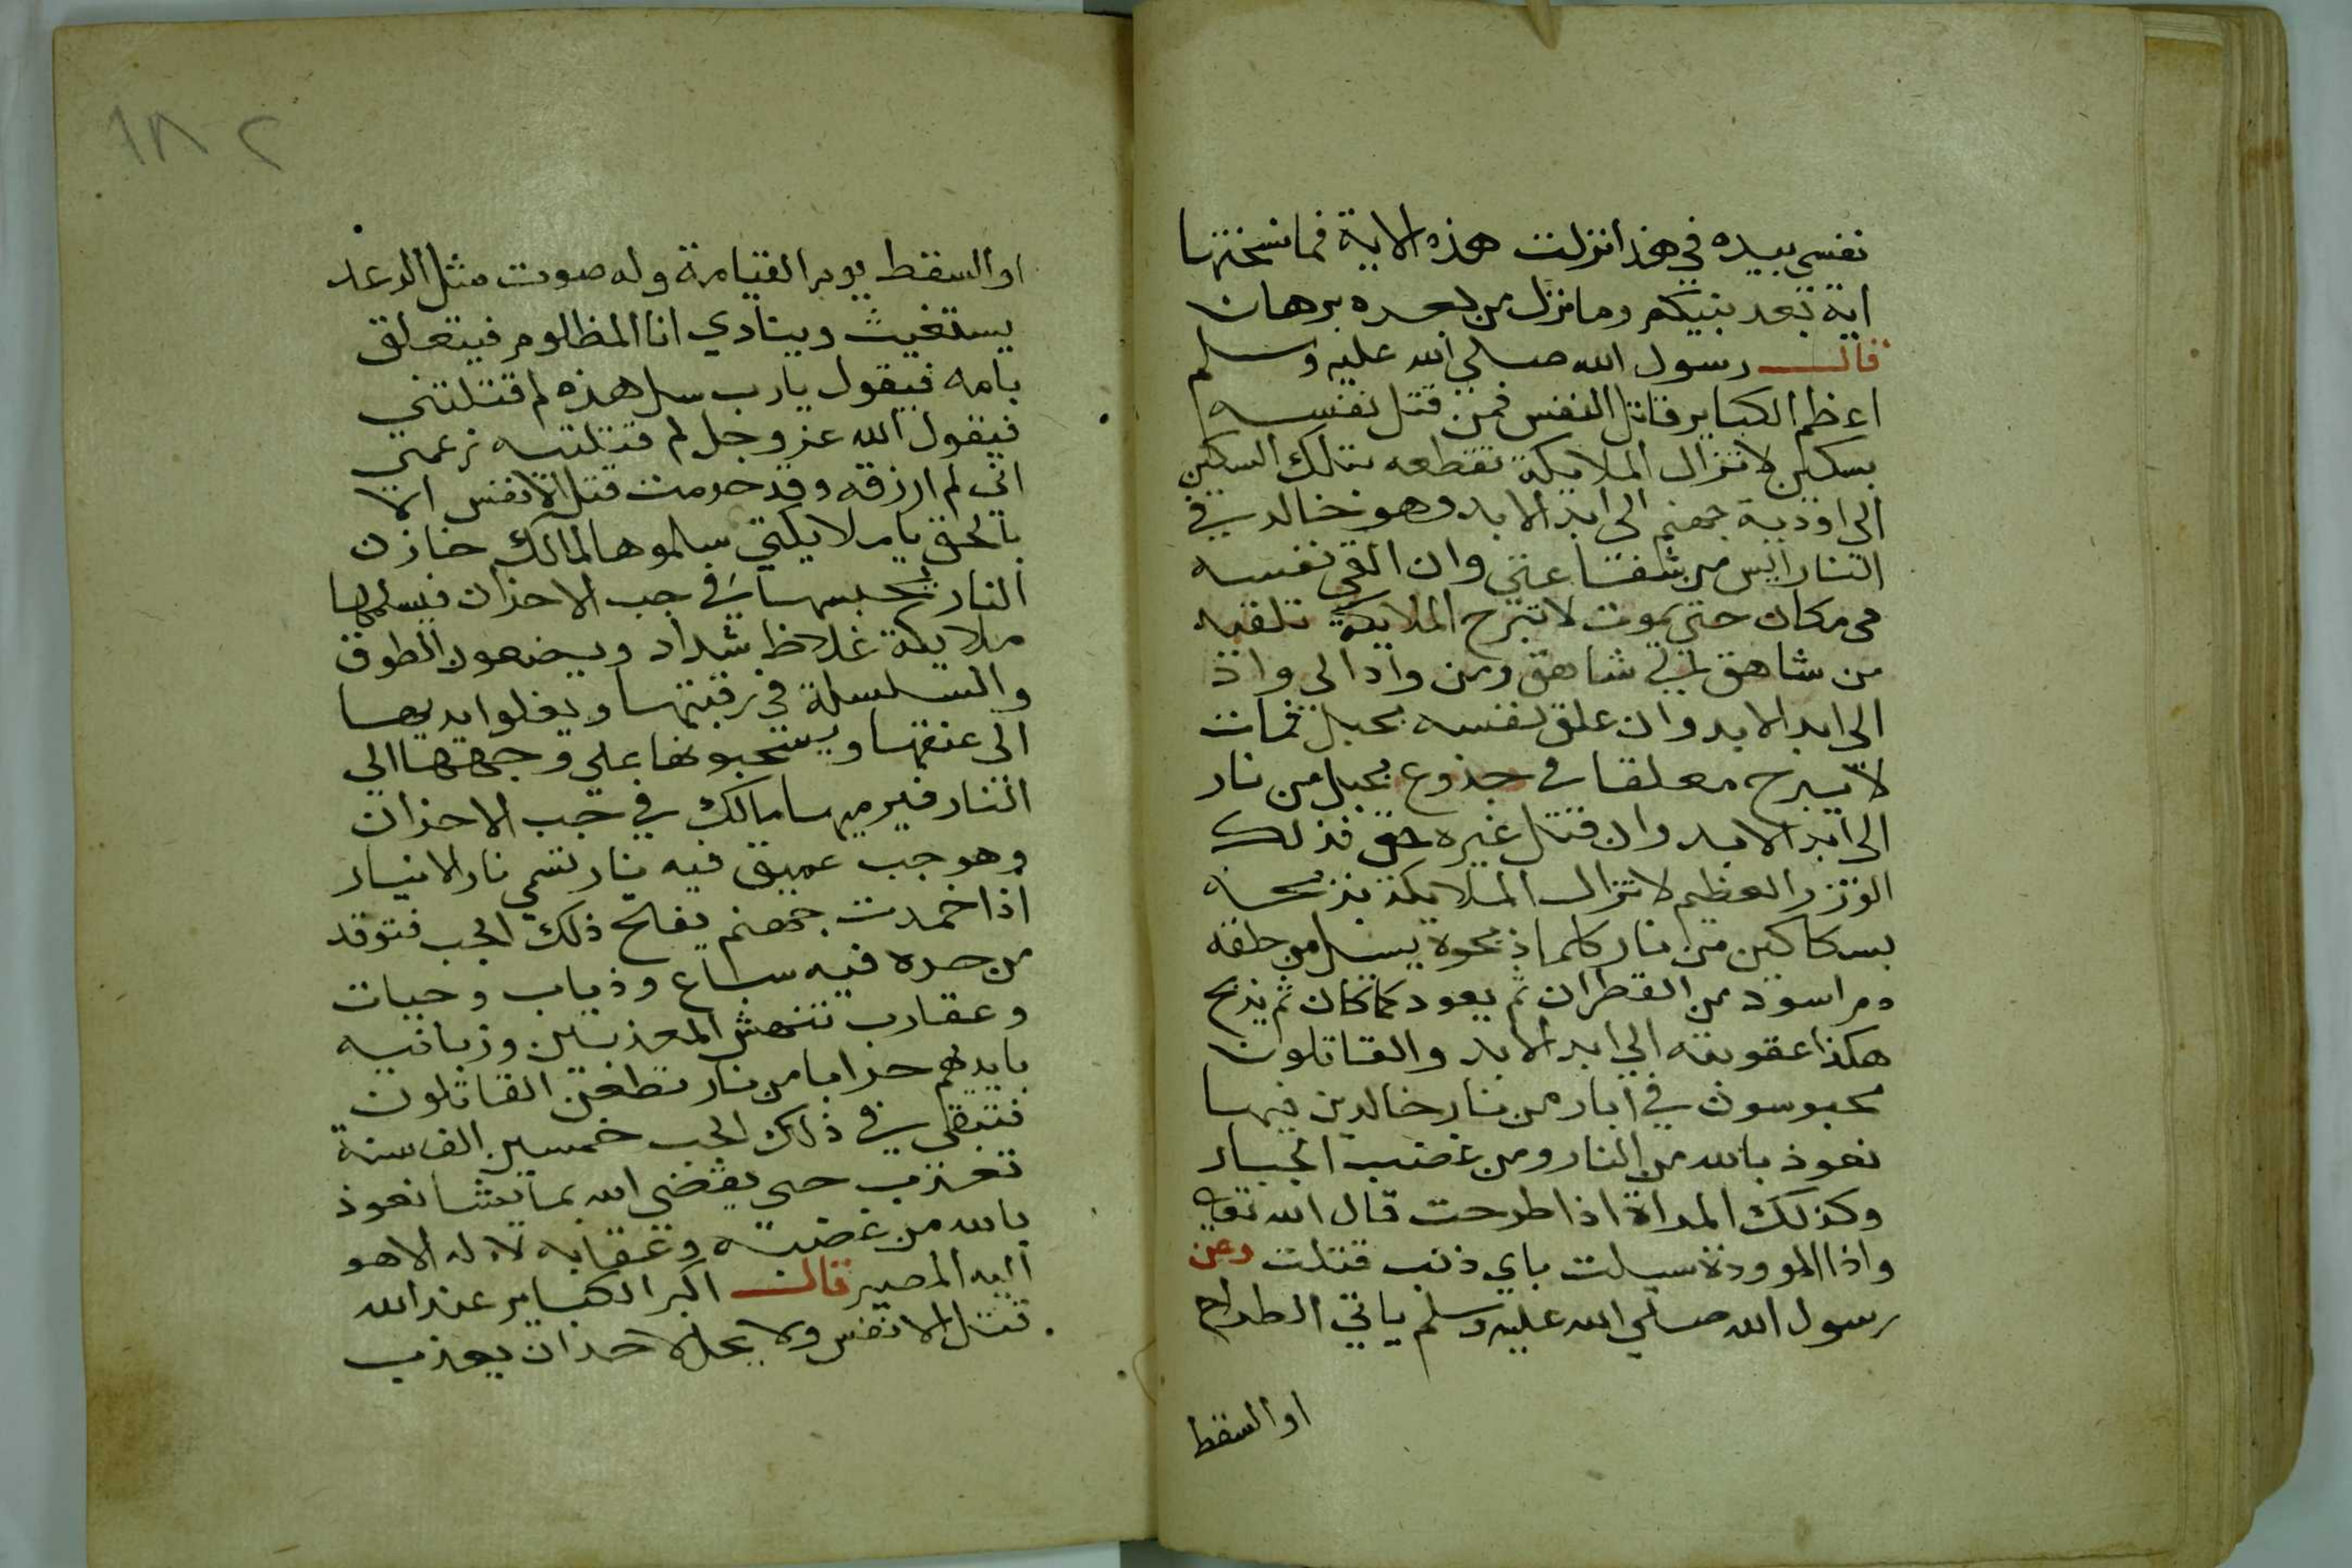 نفسي بيده في هذا نزلت هذه الاية فما نسختها
اية بعد نبيكم وما نزل من بعده برهان
قال رسول الله صلي الله عليه وسلم
اعظم الكباير قاتل النفس فمن قتل نفسه
بسكين لا تزال الملايكة تقطعه بتلك السكين
الى اودية جهنم الى ابد الابد وهو خالد في
النار ايس من شفاعتي وان القي نفسه
من مكان حتي يموت لا تبرح الملايكة تلقيه
من شاهق الي شاهق ومن واد الى واد
الي ابد الابد وان علق نفسه بحبل فمات
لا يبرح معلقا في جذوع بحبل من نار
الى ابد الابد وان قتل غيره حق فذلك
الوزر العظيم لا تزال الملايكة تذبحه
بسكاكين من نار كلما ذبحوه يسيل من حلقه
دم اسود من القطران ثم يعود كما كان ثم يذبح
هكذا عقوبته الي ابد الابد والقاتلون
محبوسون في ابار من نار خالدين فيها
نعوذ بالله من النار ومن غضب الجبار
وكذلك المراة اذا طرحت قال الله تعالي
واذا الموودة سيلت باي ذنب قتلت وعن
رسول الله صلي الله عليه وسلم ياتي الطراح
او السقط
١٨٢
او السقط يوم القيامة وله صوت مثل الرعد
يستغيث وينادي انا المظلوم فيتعلق
بامه فيقول يارب سل هذه لم قتلتني
فيقول الله عز وجل لم قتلتيه زعمتي
اني لم ارزقه وقد حرمت قتل الانفس الا
بالحق يا ملايكتي سلموها لمالك خازن
النار يحبسها في جب الاحزان فيسلمها
ملايكة غلاظ شداد ويضعون الطوق
والسلسلة في رقبتها ويغلوا يديها
الى عنقها ويسحبونها علي وجهها الي
النار فيرميها مالك في جب الاحزان
وهو جب عميق فيه نار تسمي نار الانيار
اذا خمدت جهنم يفتح ذلك الجب فتوقد
من حره فيه سباع وذياب وحيات
وعقارب تنهش المعذبين وزبانيه
بايديهم حرابا من نار تطعن القاتلون
فتبقي في ذلك الجب خمسين الف سنة
تعذب حتي يقضي الله بما يشا نعوذ
بالله من غضبه وعقابه لا اله الا هو
اليه المصير قال اكبر الكباير عند الله
قتل الانفس ولا يحل لاحد ان يعذب